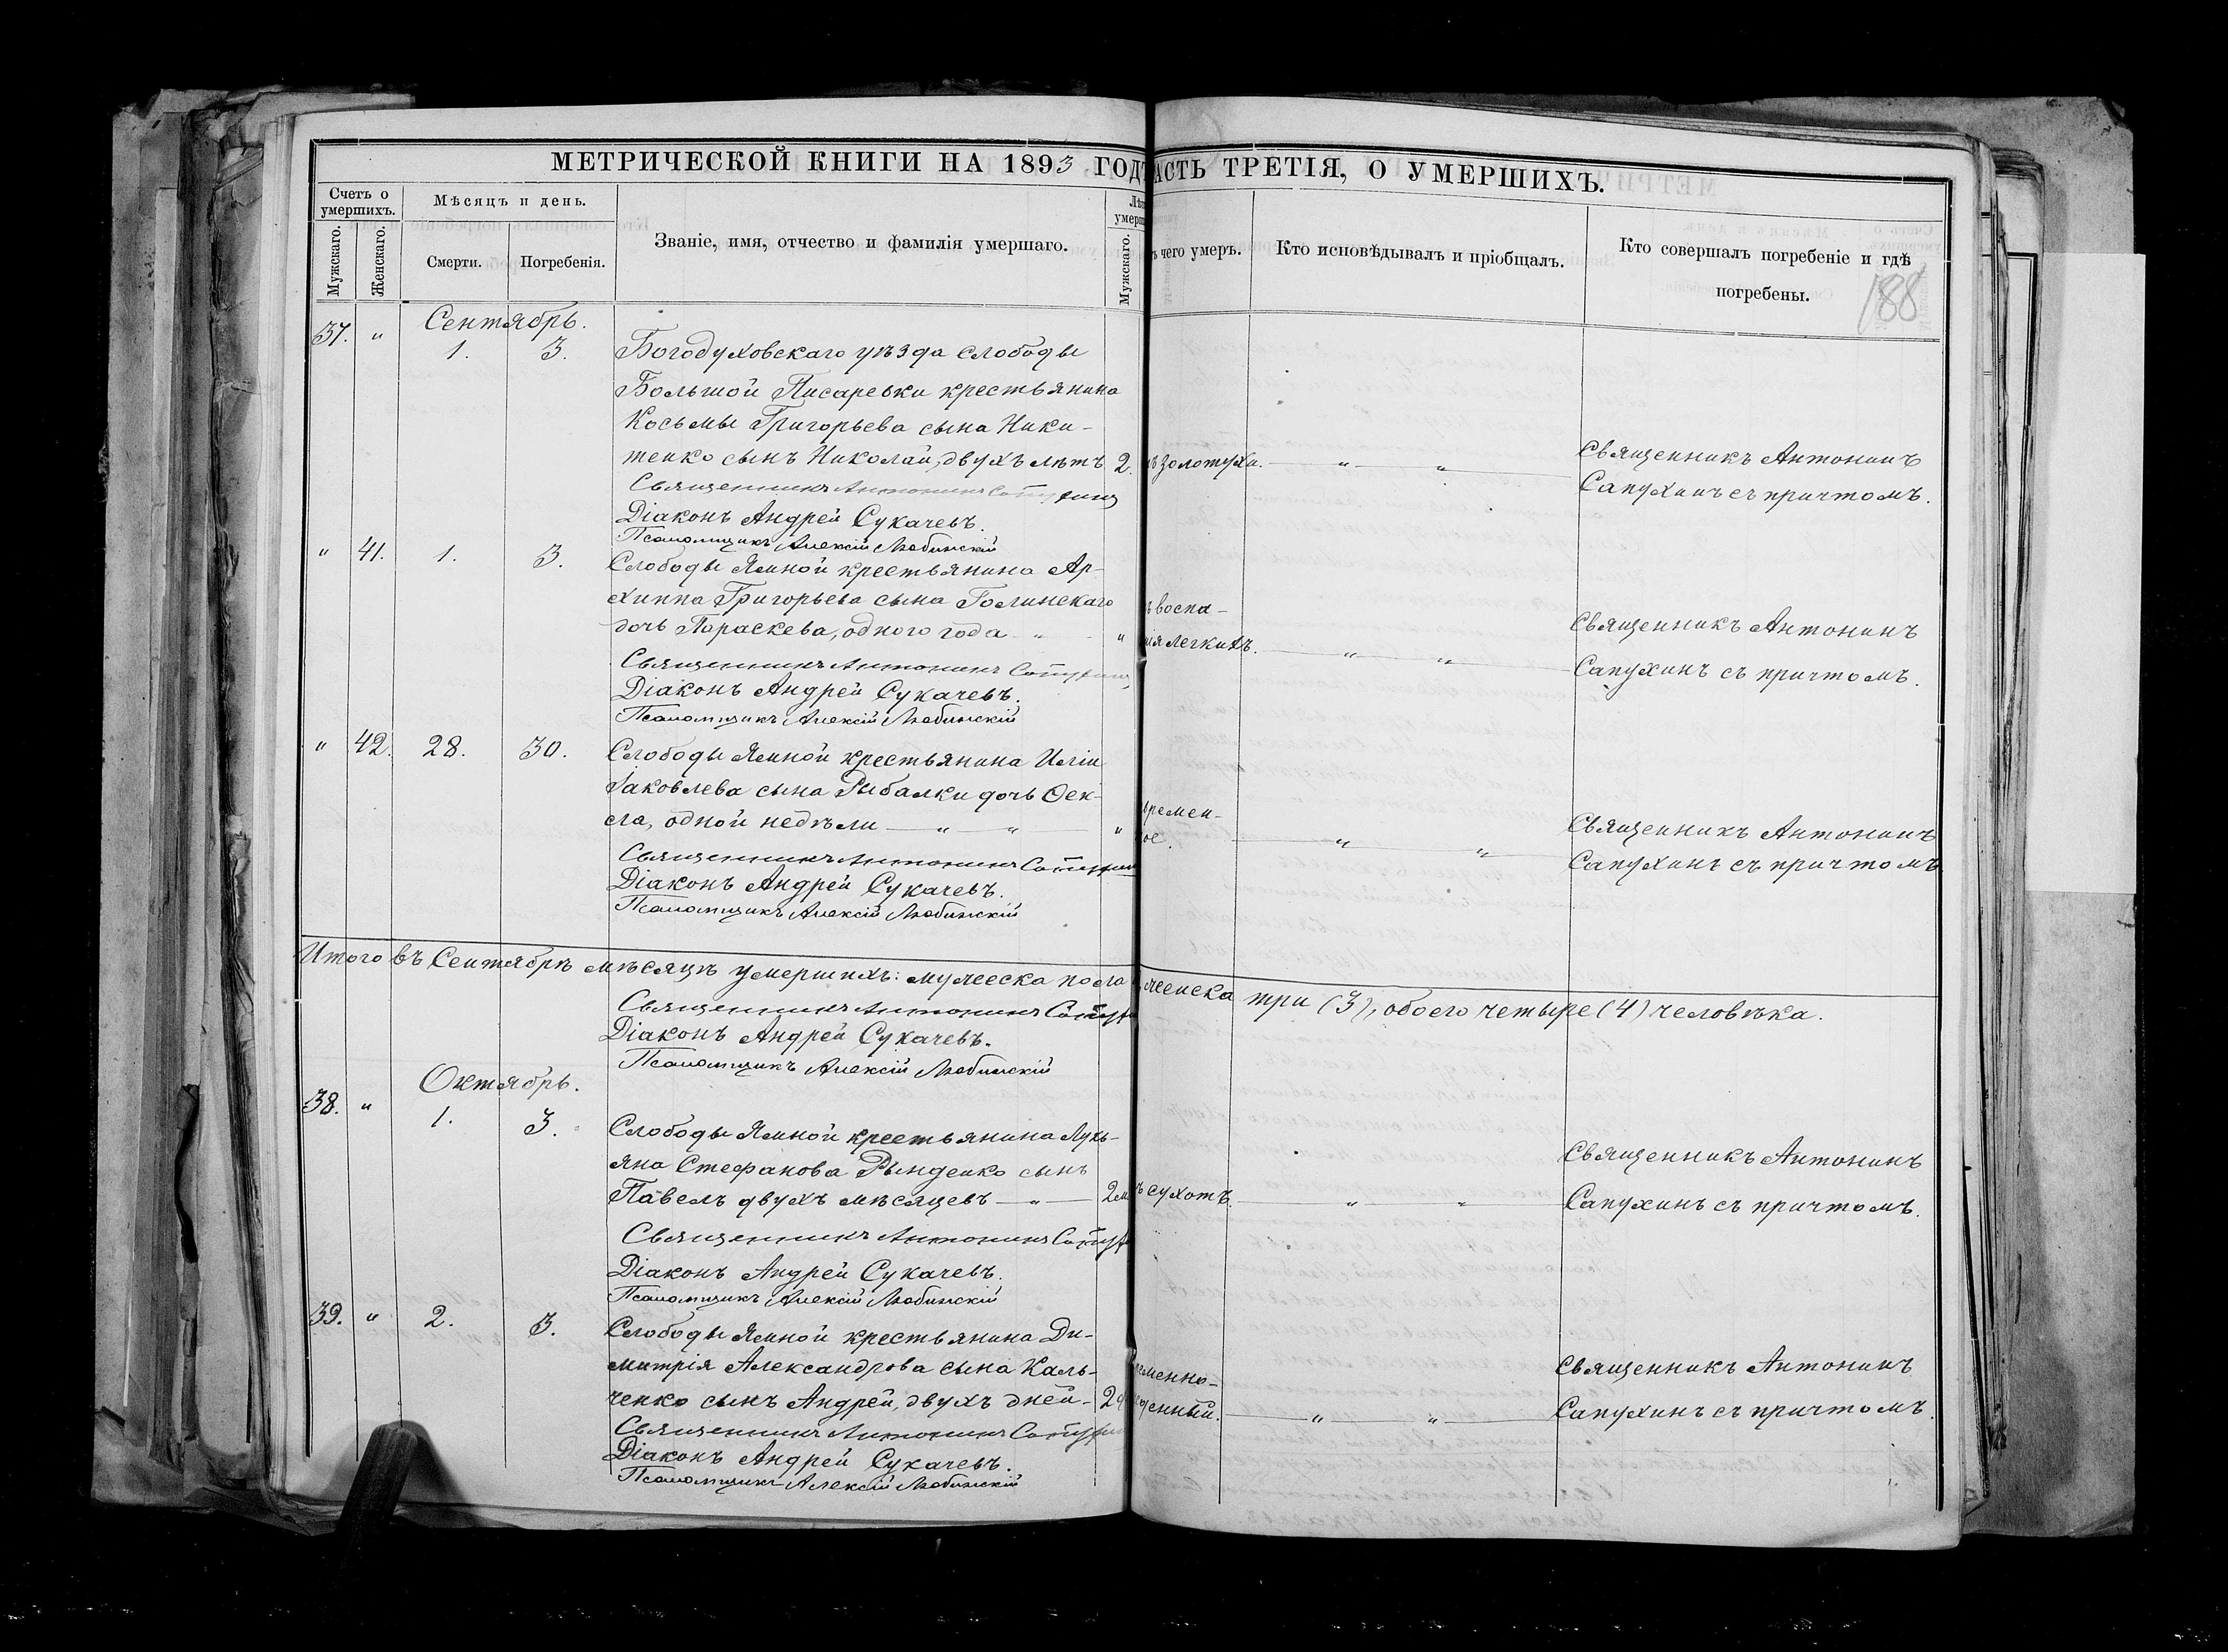 МЕТРИЧЕСКОЙ КНИГИ НА 1893 ГОД
АСТЬ ТРЕТІЯ, О УМЕРШИХЪ.
Счетъ о умершихъ.
Мужскаго.
Женскаго.
Мѣсяцъ и день.
Смерти.
Погребенія.
Званіе, имя, отчество и фамилія умершаго.
Мужскаго.
чего умеръ.
Кто исповѣдывалъ и пріобщалъ.
Кто совершалъ погребеніе и гдѣ
погребены.
188
Сентябрь.
37. " 1. 3. Богодуховскаго уѣзда слободы
Большой Писаревки крестьянина
Косьмы Григорьева сына Ники-
тенко сынъ Николай, двухъ лѣтъ 2. золотухи. " " Священникъ Антонинъ
Сапухинъ съ причтомъ.
Священникъ Антонинъ Сапухинъ
Діаконъ Андрей Сукачевъ.
Псаломщикъ Алексій Любинскій
" 41. 1. 3. Слободы Ямной крестьянина Ар-
хиппа Григорьева сына Голинскаго воспа-
дочь Параскева, одного года " " ія легкихъ. " " Священникъ Антонинъ
Сапухинъ съ причтомъ.
Священникъ Антонинъ
Діаконъ Андрей Сукачевъ.
Псаломщикъ Алексій Любинскій
" 42. 28. 30. Слободы Ямной крестьянина Иліи
Іаковлева сына Рыбалки дочь Ѳек-
ла, одной недѣли " " " времен-
ое. " " Священникъ Антонинъ
Сапухинъ съ причтомъ
Священникъ Антонинъ
Діаконъ Андрей Сукачевъ.
Псаломщикъ Алексій Любинскій
Итого въ Сентябрѣ мѣсяцѣ умершихъ: мужеска пола женска три (3), обоего четыре (4) человѣка.
Священникъ Антонинъ
Діаконъ Андрей Сукачевъ.
Псаломщикъ Алексій Любинскій
Октябрь.
38. " 1. 3. Слободы Ямной крестьянина Лукь-
яна Стефанова Рынденко сынъ
Павелъ двухъ мѣсяцевъ " 2 м сухотъ. " " Священникъ Антонинъ
Сапухинъ съ причтомъ.
Священникъ Антонинъ
Діаконъ Андрей Сукачевъ.
Псаломщикъ Алексій Любинскій
39. " 2. 3. Слободы Ямной крестьянина Ди-
митрія Александрова сына Каль-
ченко сынъ Андрей, двухъ дней 2 д еменно-
енный. " " Священникъ Антонинъ
Сапухинъ съ причтомъ.
Священникъ Антонинъ
Діаконъ Андрей Сукачевъ.
Псаломщикъ Алексій Любинскій